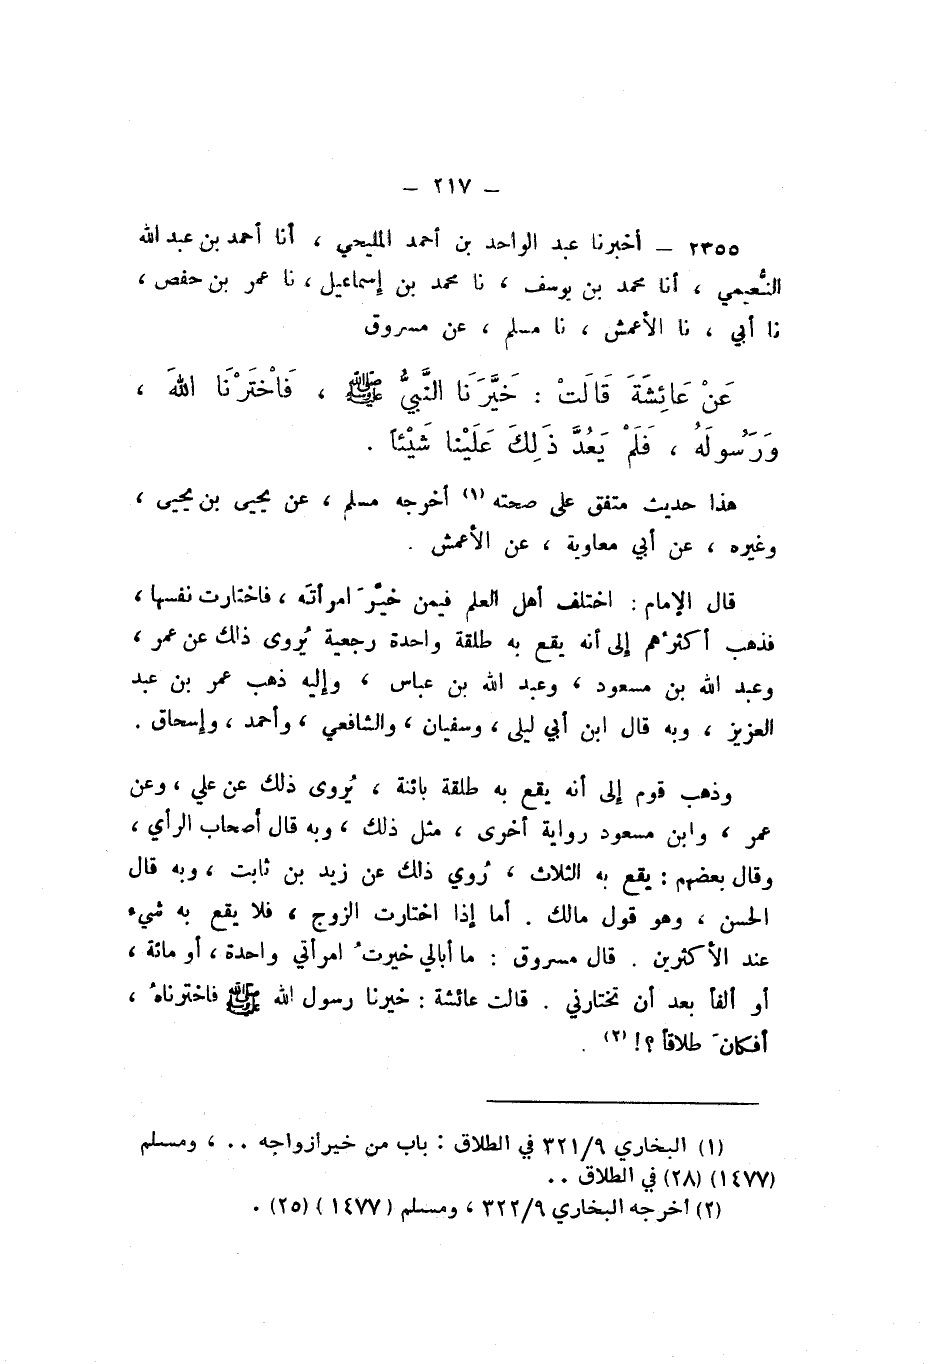 – ٢١٧ –
٢٣٥٥ – أخبرنا عبد الواحد بن أحمد المليحي ، أنا أحمد بن عبد الله
النُّعيمي ، أنا محمد بن يوسف ، نا محمد بن إسماعيل ، نا عمر بن حفص ،
نا أبي ، نا الأعمش ، نا مسلم ، عن مسروق
عَنْ عَائِشَةَ قَالَتْ : خَيَّرَنَا النَّبِيُّ ﷺ ، فَاخْتَرْنَا اللهَ ،
وَرَسُولَهُ ، فَلَمْ يَعُدَّ ذَلِكَ عَلَيْنا شَيْئاً .
هذا حديث متفق على صحته (١) أخرجه مسلم ، عن يحيى بن يحيى ،
وغيره ، عن أبي معاوية ، عن الأعمش .
قال الإمام : اختلف أهل العلم فيمن خيَّرَ امرأتَه ، فاختارت نفسها ،
فذهب أكثرُهم إلى أنه يقع به طلقة واحدة رجعية يُروى ذلك عن عمر ،
وعبد الله بن مسعود ، وعبد الله بن عباس ، وإليه ذهب عمر بن عبد
العزيز ، وبه قال ابن أبي ليلى ، وسفيان ، والشافعي ، وأحمد ، وإسحاق .
وذهب قوم إلى أنه يقع به طلقة بائنة ، يُروى ذلك عن علي ، وعن
عمر ، وابن مسعود رواية أخرى ، مثل ذلك ، وبه قال أصحاب الرأي ،
وقال بعضهم : يقع به الثلاث ، رُوي ذلك عن زيد بن ثابت ، وبه قال
الحسن ، وهو قول مالك . أما إذا اختارت الزوج ، فلا يقع به شيء
عند الأكثرين . قال مسروق : ما أبالي خيرتُ امرأتي واحدة ، أو مائة ،
أو ألفاً بعد أن تختارني . قالت عائشة : خيرنا رسول الله ﷺ فاخترناهُ ،
أفكانَ طلاقاً ؟! (٢) .
(١) البخاري ٩/٣٢١ في الطلاق : باب من خير أزواجه .. ، ومسلم
(١٤٧٧) (٢٨) في الطلاق ..
(٢) أخرجه البخاري ٩/٣٢٢ ، ومسلم (١٤٧٧) (٢٥) .